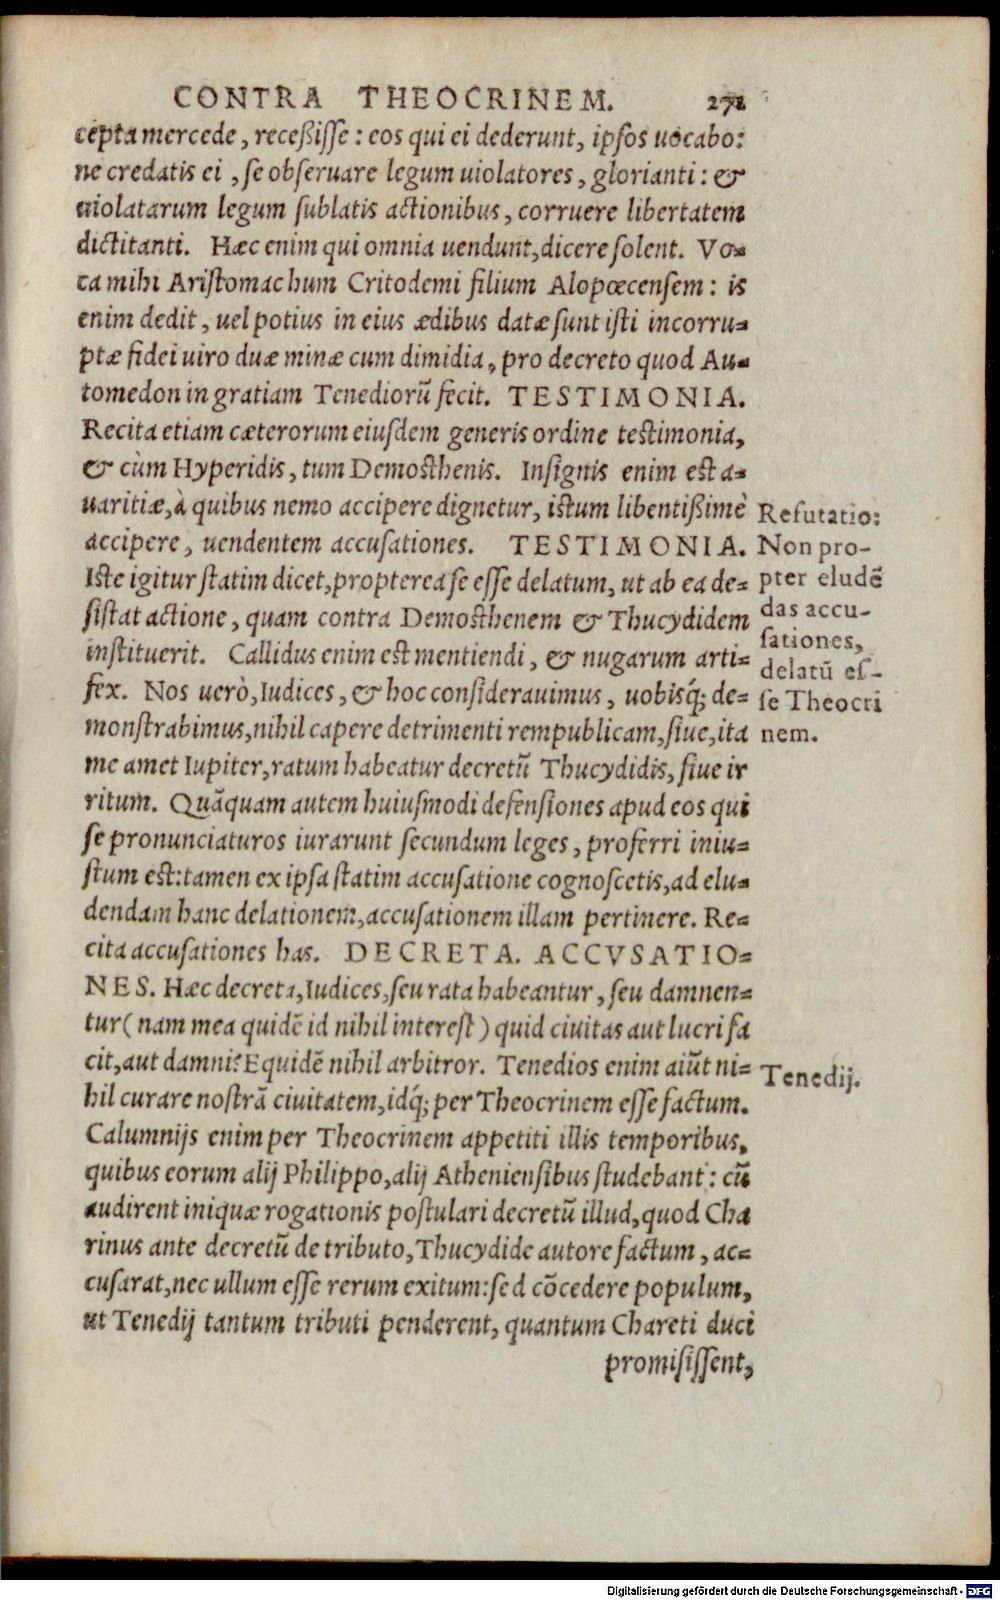 CONTRA THEOCRINEM. 271
cepta mercede, receßiſſe: eos qui ei dederunt, ipſos uocabo:
ne credatis ei, ſe obſeruare legum uiolatores, glorianti: &
uiolatarum legum ſublatis actionibus, corruere libertatem
dictitanti. Hæc enim qui omnia uendunt, dicere ſolent. Vo=
ca mihi Ariſtomachum Critodemi filium Alopœcenſem: is
enim dedit, uel potius in eius ædibus datæ ſunt iſti incorru=
ptæ fidei uiro duæ minæ cum dimidia, pro decreto quod Au=
tomedon in gratiam Tenediorũ fecit. TESTIMONIA.
Recita etiam cæterorum eiuſdem generis ordine teſtimonia,
& cùm Hyperidis, tum Demoſthenis. Inſignis enim eſt a=
uaritiæ, à quibus nemo accipere dignetur, iſtum libentißimè
accipere, uendentem accuſationes. TESTIMONIA.
Iſte igitur ſtatim dicet, propterea ſe eſſe delatum, ut ab ea de=
ſiſtat actione, quam contra Demoſthenem & Thucydidem
inſtituerit. Callidus enim eſt mentiendi, & nugarum arti=
fex. Nos uerò, Iudices, & hoc conſiderauimus, uobisq́; de=
monſtrabimus, nihil capere detrimenti rempublicam, ſiue, ita
me amet Iupiter, ratum habeatur decretũ Thucydidis, ſiue ir
ritum. Quãquam autem huiuſmodi defenſiones apud eos qui
ſe pronunciaturos iurarunt ſecundum leges, proferri iniu=
ſtum eſt: tamen ex ipſa ſtatim accuſatione cognoſcetis, ad elu=
dendam hanc delationem, accuſationem illam pertinere. Re=
cita accuſationes has. DECRETA. ACCVSATIO=
NES. Hæc decreta, Iudices, ſeu rata habeantur, ſeu damnen=
tur (nam mea quidẽ id nihil intereſt) quid ciuitas aut lucri fa
cit, aut damni? Equidẽ nihil arbitror. Tenedios enim aiũt ni=
hil curare noſtrã ciuitatem, idq́; per Theocrinem eſſe factum.
Calumnijs enim per Theocrinem appetiti illis temporibus,
quibus eorum alij Philippo, alij Athenienſibus ſtudebant: cũ
audirent iniquæ rogationis poſtulari decretũ illud, quod Cha
rinus ante decretũ de tributo, Thucydide autore factum, ac=
cuſarat, nec ullum eſſe rerum exitum: ſed cõcedere populum,
ut Tenedij tantum tributi penderent, quantum Chareti duci
promiſiſſent,
Refutatio:
Non pro-
pter eludẽ
das accu-
ſationes,
delatũ eſ-
ſe Theocri
nem.
Tenedij.
Digitalisierung gefördert durch die Deutsche Forschungsgemeinschaft - DFG